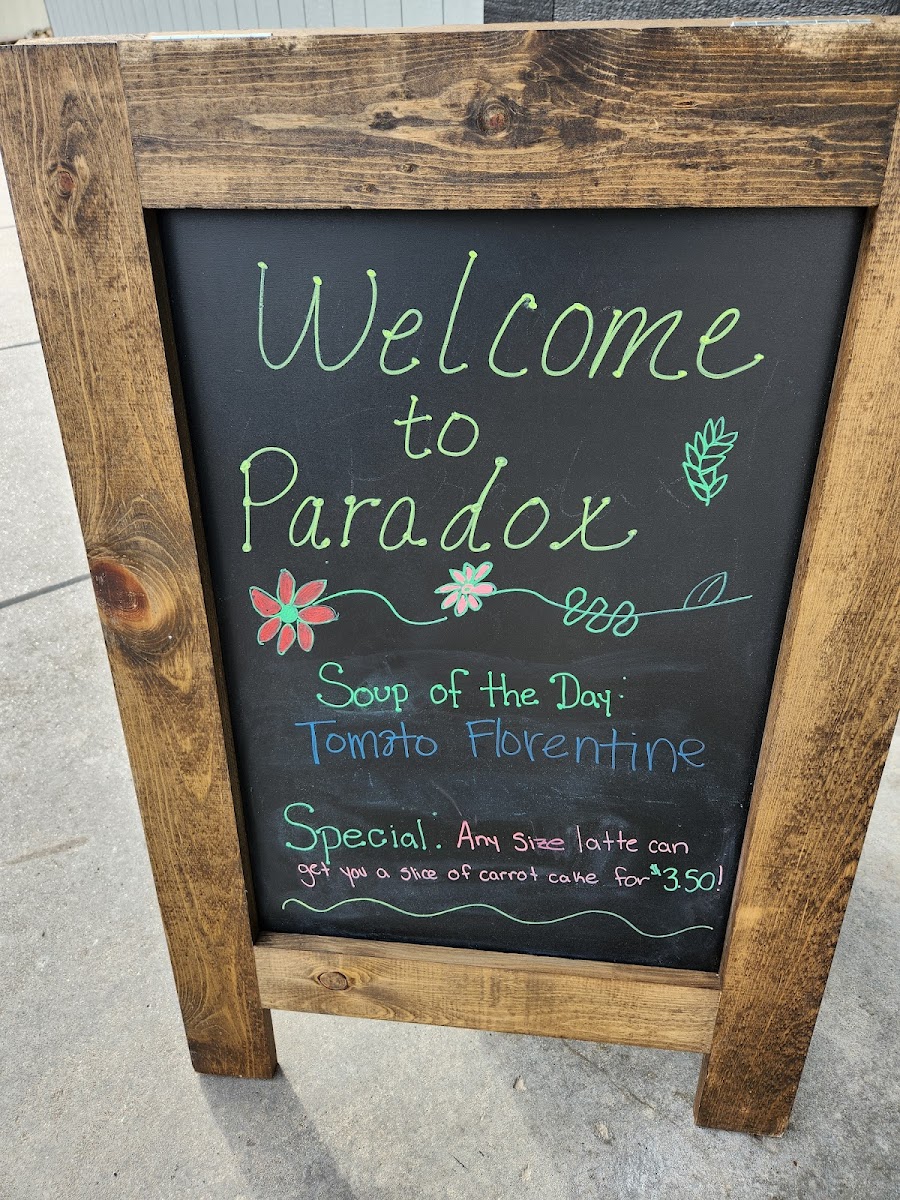 Welcome
to
Paradox
Soup of the Day:
Tomato Florentine
Special: Any size latte can
get you a slice of carrot cake for $3.50!